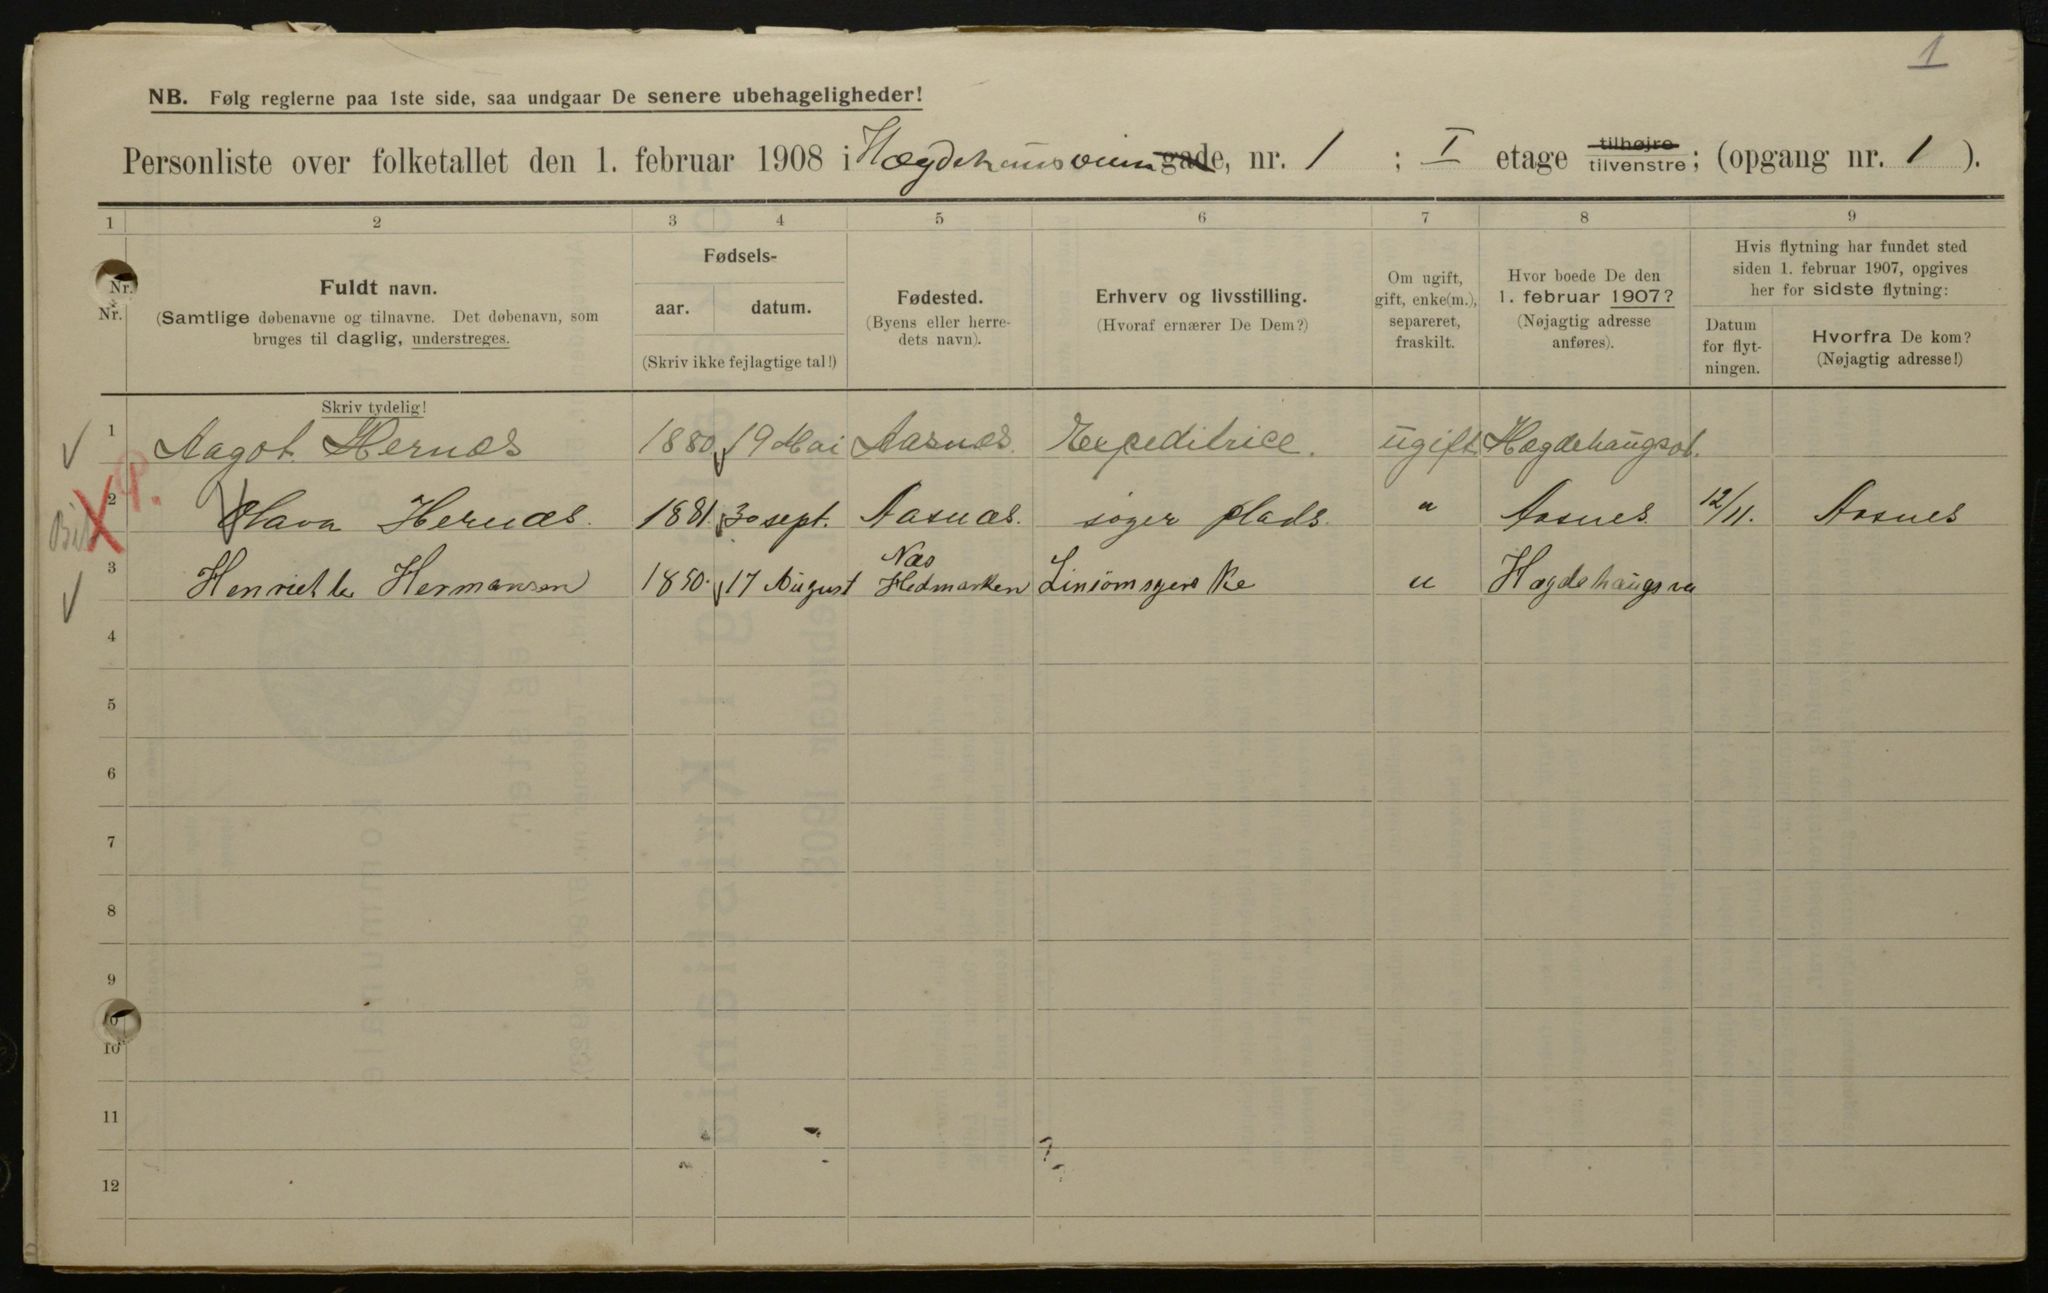 1
NB. Følg reglerne paa 1ste side, saa undgaar De senere ubehageligheder!
Personliste over folketallet den 1. februar 1908 i Hægdehausveien gade, nr. 1 ; I etage tilhøjre tilvenstre; (opgang nr. 1 ).
1 2 3 4 5 6 7 8 9
Nr. Nr.
Fuldt navn.
(Samtlige døbenavne og tilnavne. Det døbenavn, som
bruges til daglig, understreges.
Skriv tydelig!
Fødsels-
aar. datum.
(Skriv ikke fejlagtige tal!)
Fødested.
(Byens eller herre-
dets navn).
Erhverv og livsstilling.
(Hvoraf ernærer De Dem?)
Om ugift,
gift, enke(m.),
separeret,
fraskilt.
Hvor boede De den
1. februar 1907?
(Nøjagtig adresse
anføres).
Hvis flytning har fundet sted
siden 1. februar 1907, opgives
her for sidste flytning:
Datum
for flyt-
ningen.
Hvorfra De kom?
(Nøjagtig adresse!)
1 Aagot Hernæs 1880 19 Mai Aasnæs. Expeditrice. ugift Hægdehaugsv.
2 Hernæs. 1881. 30 sept. Aasnæs. søger plads. " Aasnes. 12/11. Aasnes
3 Henriette Hermansen 1850. 17 August Næs Hedmarken Linsømsyerske u Hægdehaugsve
4
5
6
7
8
9
10
10
11
12